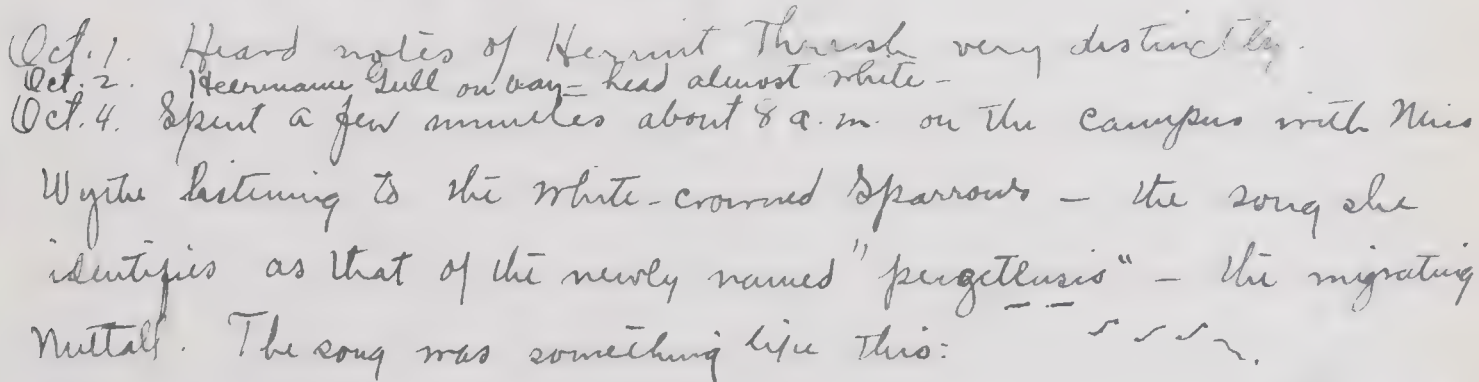 Oct. 1. Heard notes of Hermit Thrush very distinctly.
Oct. 2. Heermann Gull on bay - head almost white -
Oct. 4. Spent a few minutes about 8 a.m. on the campus with Miss
Wythe listening to the White-crowned Sparrows - the song she
identifies as that of the newly named "pugetensis" - the migrating
Nuttall. The song was something like this: